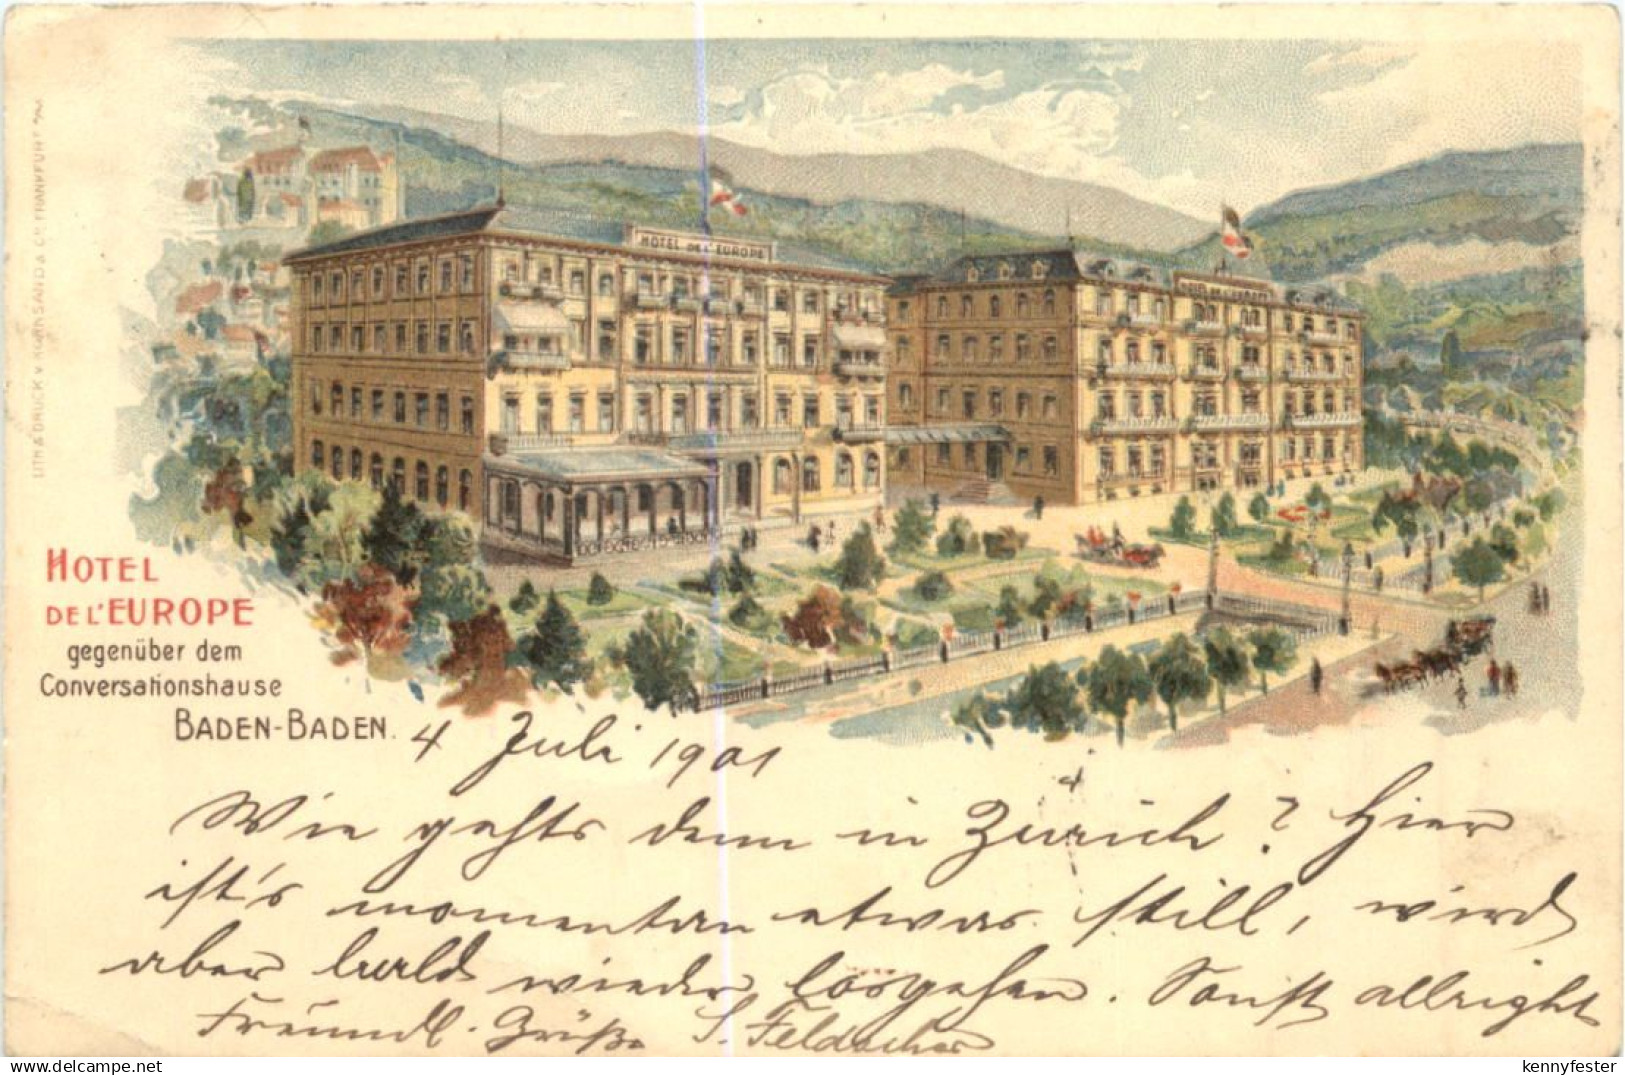 LITH. & DRUCK v. KORN SAND & Co. FRANKFURT a/M.
HOTEL DE L'EUROPE
HOTEL DE L'EUROPE
HOTEL
DE L'EUROPE
gegenüber dem
Conversationshause
BADEN-BADEN.
4 Juli 1901
Wie gehts denn in Zürich? Hier
ist's momentan etwas still, wird
aber bald wieder losgehen. Sonst allright
Freundl. Grüße S. Feldscher
delcampe.net
kennyfester